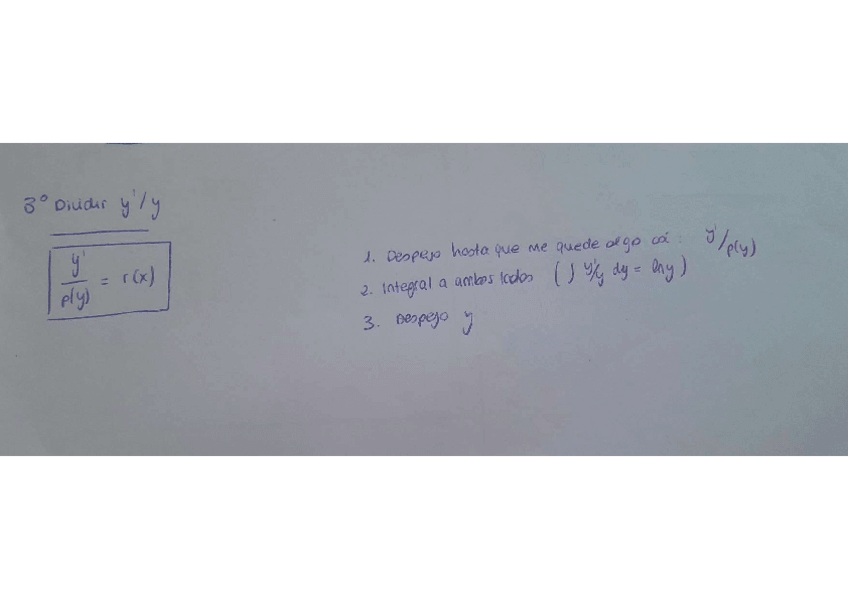 3º Dividir y'/y
y'/p(y) = r(x)
1. Despejo hasta que me quede algo así: y'/p(y)
2. Integral a ambos lados (∫ y'/y dy = ln y)
3. Despejo y